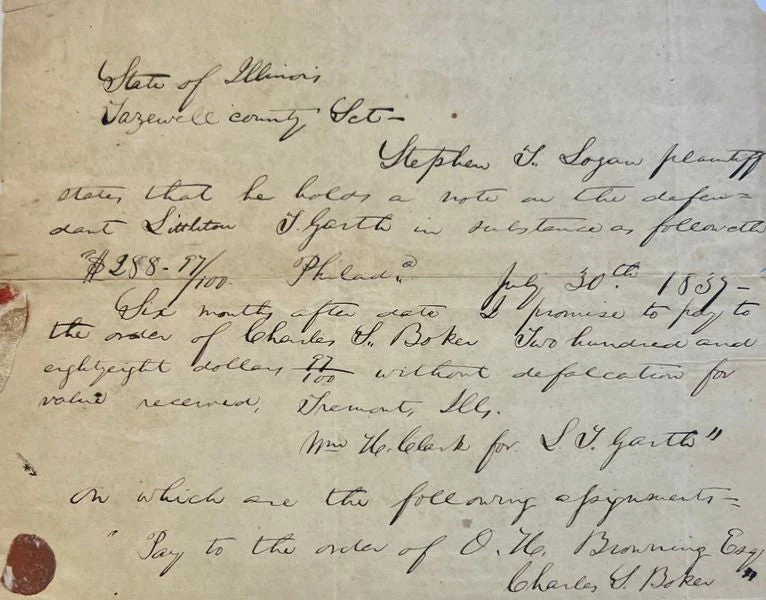 State of Illinois
Tazewell county Sct-
Stephen T. Logan plaintiff
states that he holds a note on the defen=
dant Littleton T. Garth in substance as followeth
"$288-97/100. Philada. July 30th. 1839-
Six months after date I promise to pay to
the order of Charles S. Boker Two hundred and
eightyeight dollars 97/100 without defalcation for
value received, Tremont, Ills.
Wm H. Clark for L. T. Garth"
on which are the following assignments=
"Pay to the order of O. H. Browning Esq,
Charles S. Boker"